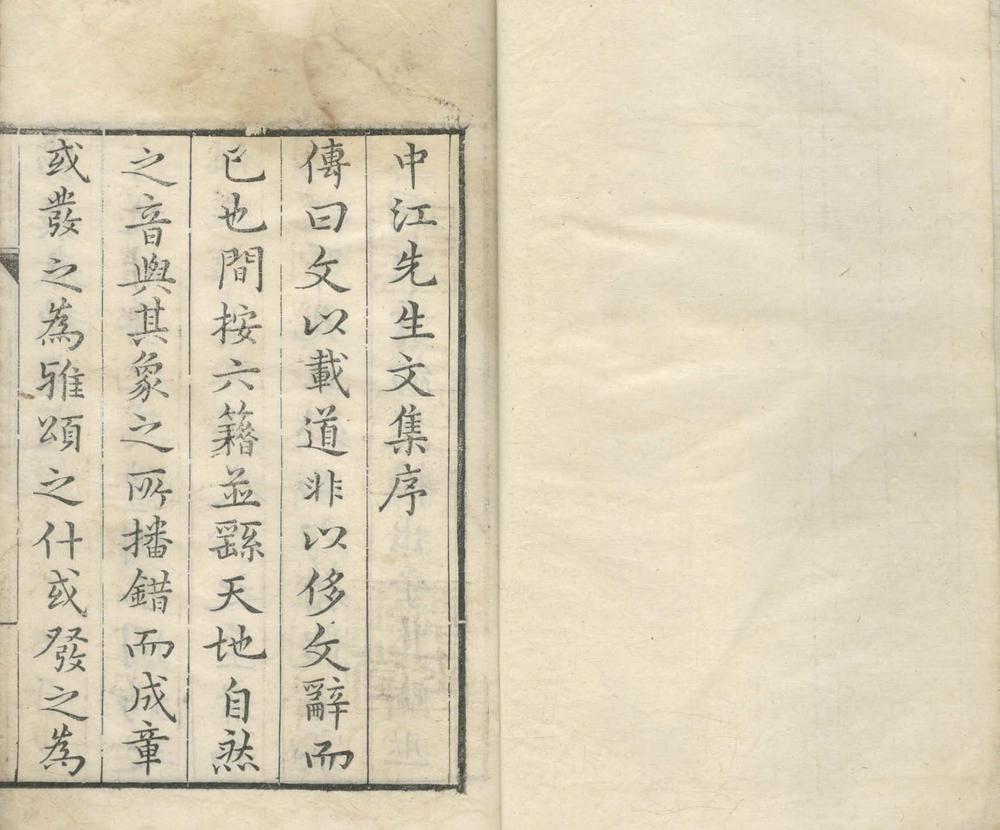 中江先生文集序
傳曰文以載道非以侈文辭而
已也間按六籍並繇天地自然
之音與其象之所播錯而成章
或發之為雅頌之什或發之為